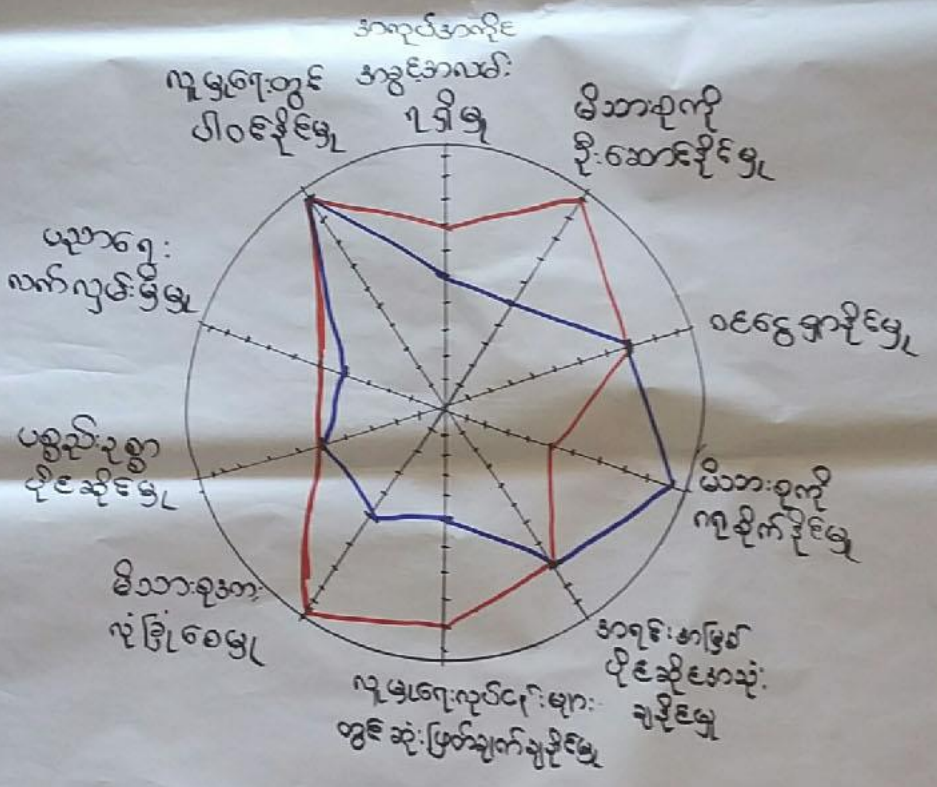 အလုပ်အကိုင်
အခွင့်အလမ်း
ရရှိမှု
မိသားစုကို
ဦးဆောင်နိုင်မှု
ဝင်ငွေရှာနိုင်မှု
မိသားစုကို
ကူညီနိုင်မှု
အရင်းအမြစ်
ပိုင်ဆိုင်အသုံး
ချနိုင်မှု
လူမှုရေးလုပ်ငန်းများ
တွင်ဆုံးဖြတ်ချက်ချနိုင်မှု
မိသားစုအား
လုံခြုံစေမှု
ပစ္စည်းဥစ္စာ
ပိုင်ဆိုင်မှု
ပညာရေး
လက်လှမ်းမှီမှု
လူမှုရေးတွင်
ပါဝင်နိုင်မှု